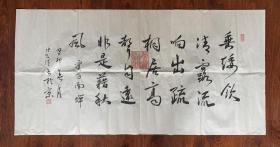 垂緌飲
清露流
响出疏
桐居高
聲自遠
非是藉秋
風 虞世南蟬